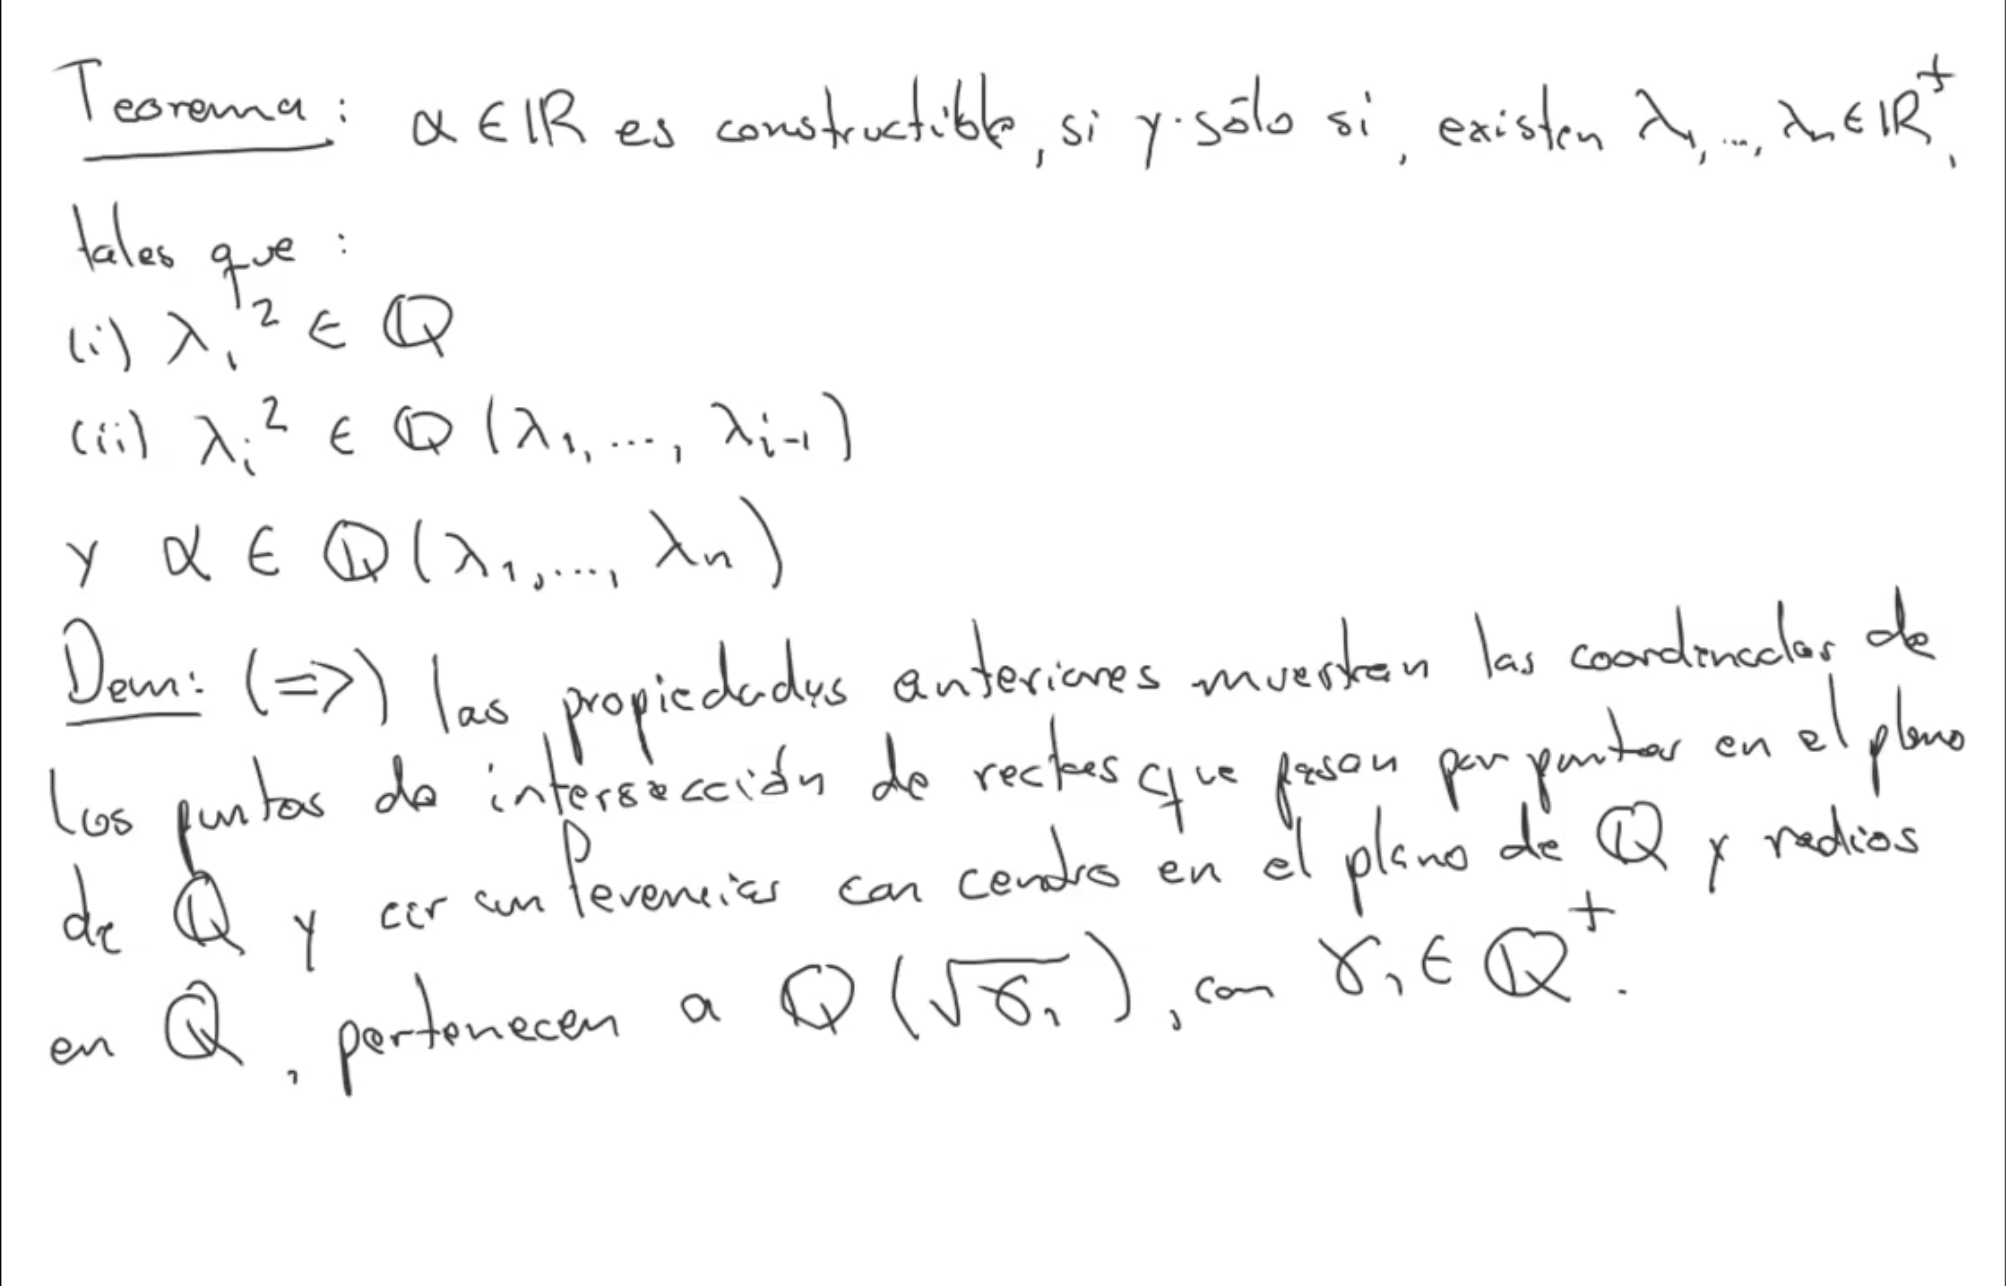 Teorema: α ∈ ℝ es constructible, si y sólo si, existen λ₁, ..., λₙ ∈ ℝ⁺,
tales que:
(i) λ₁² ∈ ℚ
(ii) λᵢ² ∈ ℚ(λ₁, ..., λᵢ₋₁)
y α ∈ ℚ(λ₁, ..., λₙ)
Dem: (=>) las propiedades anteriores muestran las coordenadas de
los puntos de intersección de rectas que pasan por puntos en el plano
de ℚ y circunferencias con centro en el plano de ℚ y radios
en ℚ, pertenecen a ℚ(√γ₁), con γ₁ ∈ ℚ⁺.